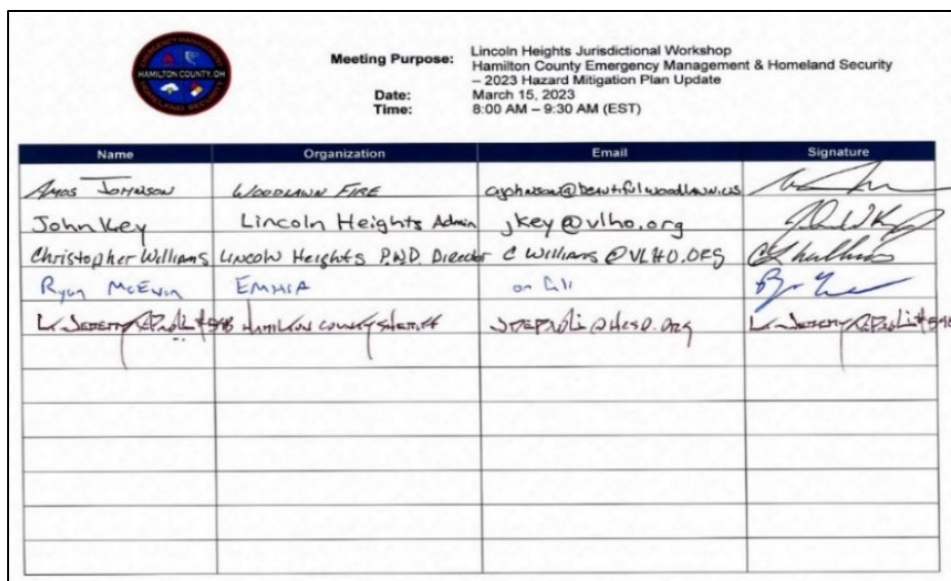 EMERGENCY MANAGEMENT
HAMILTON COUNTY, OH
HOMELAND SECURITY
Meeting Purpose: Lincoln Heights Jurisdictional Workshop
Hamilton County Emergency Management & Homeland Security
– 2023 Hazard Mitigation Plan Update
Date: March 15, 2023
Time: 8:00 AM – 9:30 AM (EST)
Name Organization Email Signature
Amos Johnson WOODLAWN FIRE ajohnson@beautifulwoodlawn.us
John Key Lincoln Heights Admin jkey@vlho.org
Christopher Williams Lincoln Heights P.W.D. Director C Williams @VLHO.ORG
Ryan McEwan EMHSA on file
Lt. Jeremy HAMILTON COUNTY SHERIFF @HCSO.ORG Lt. Jeremy